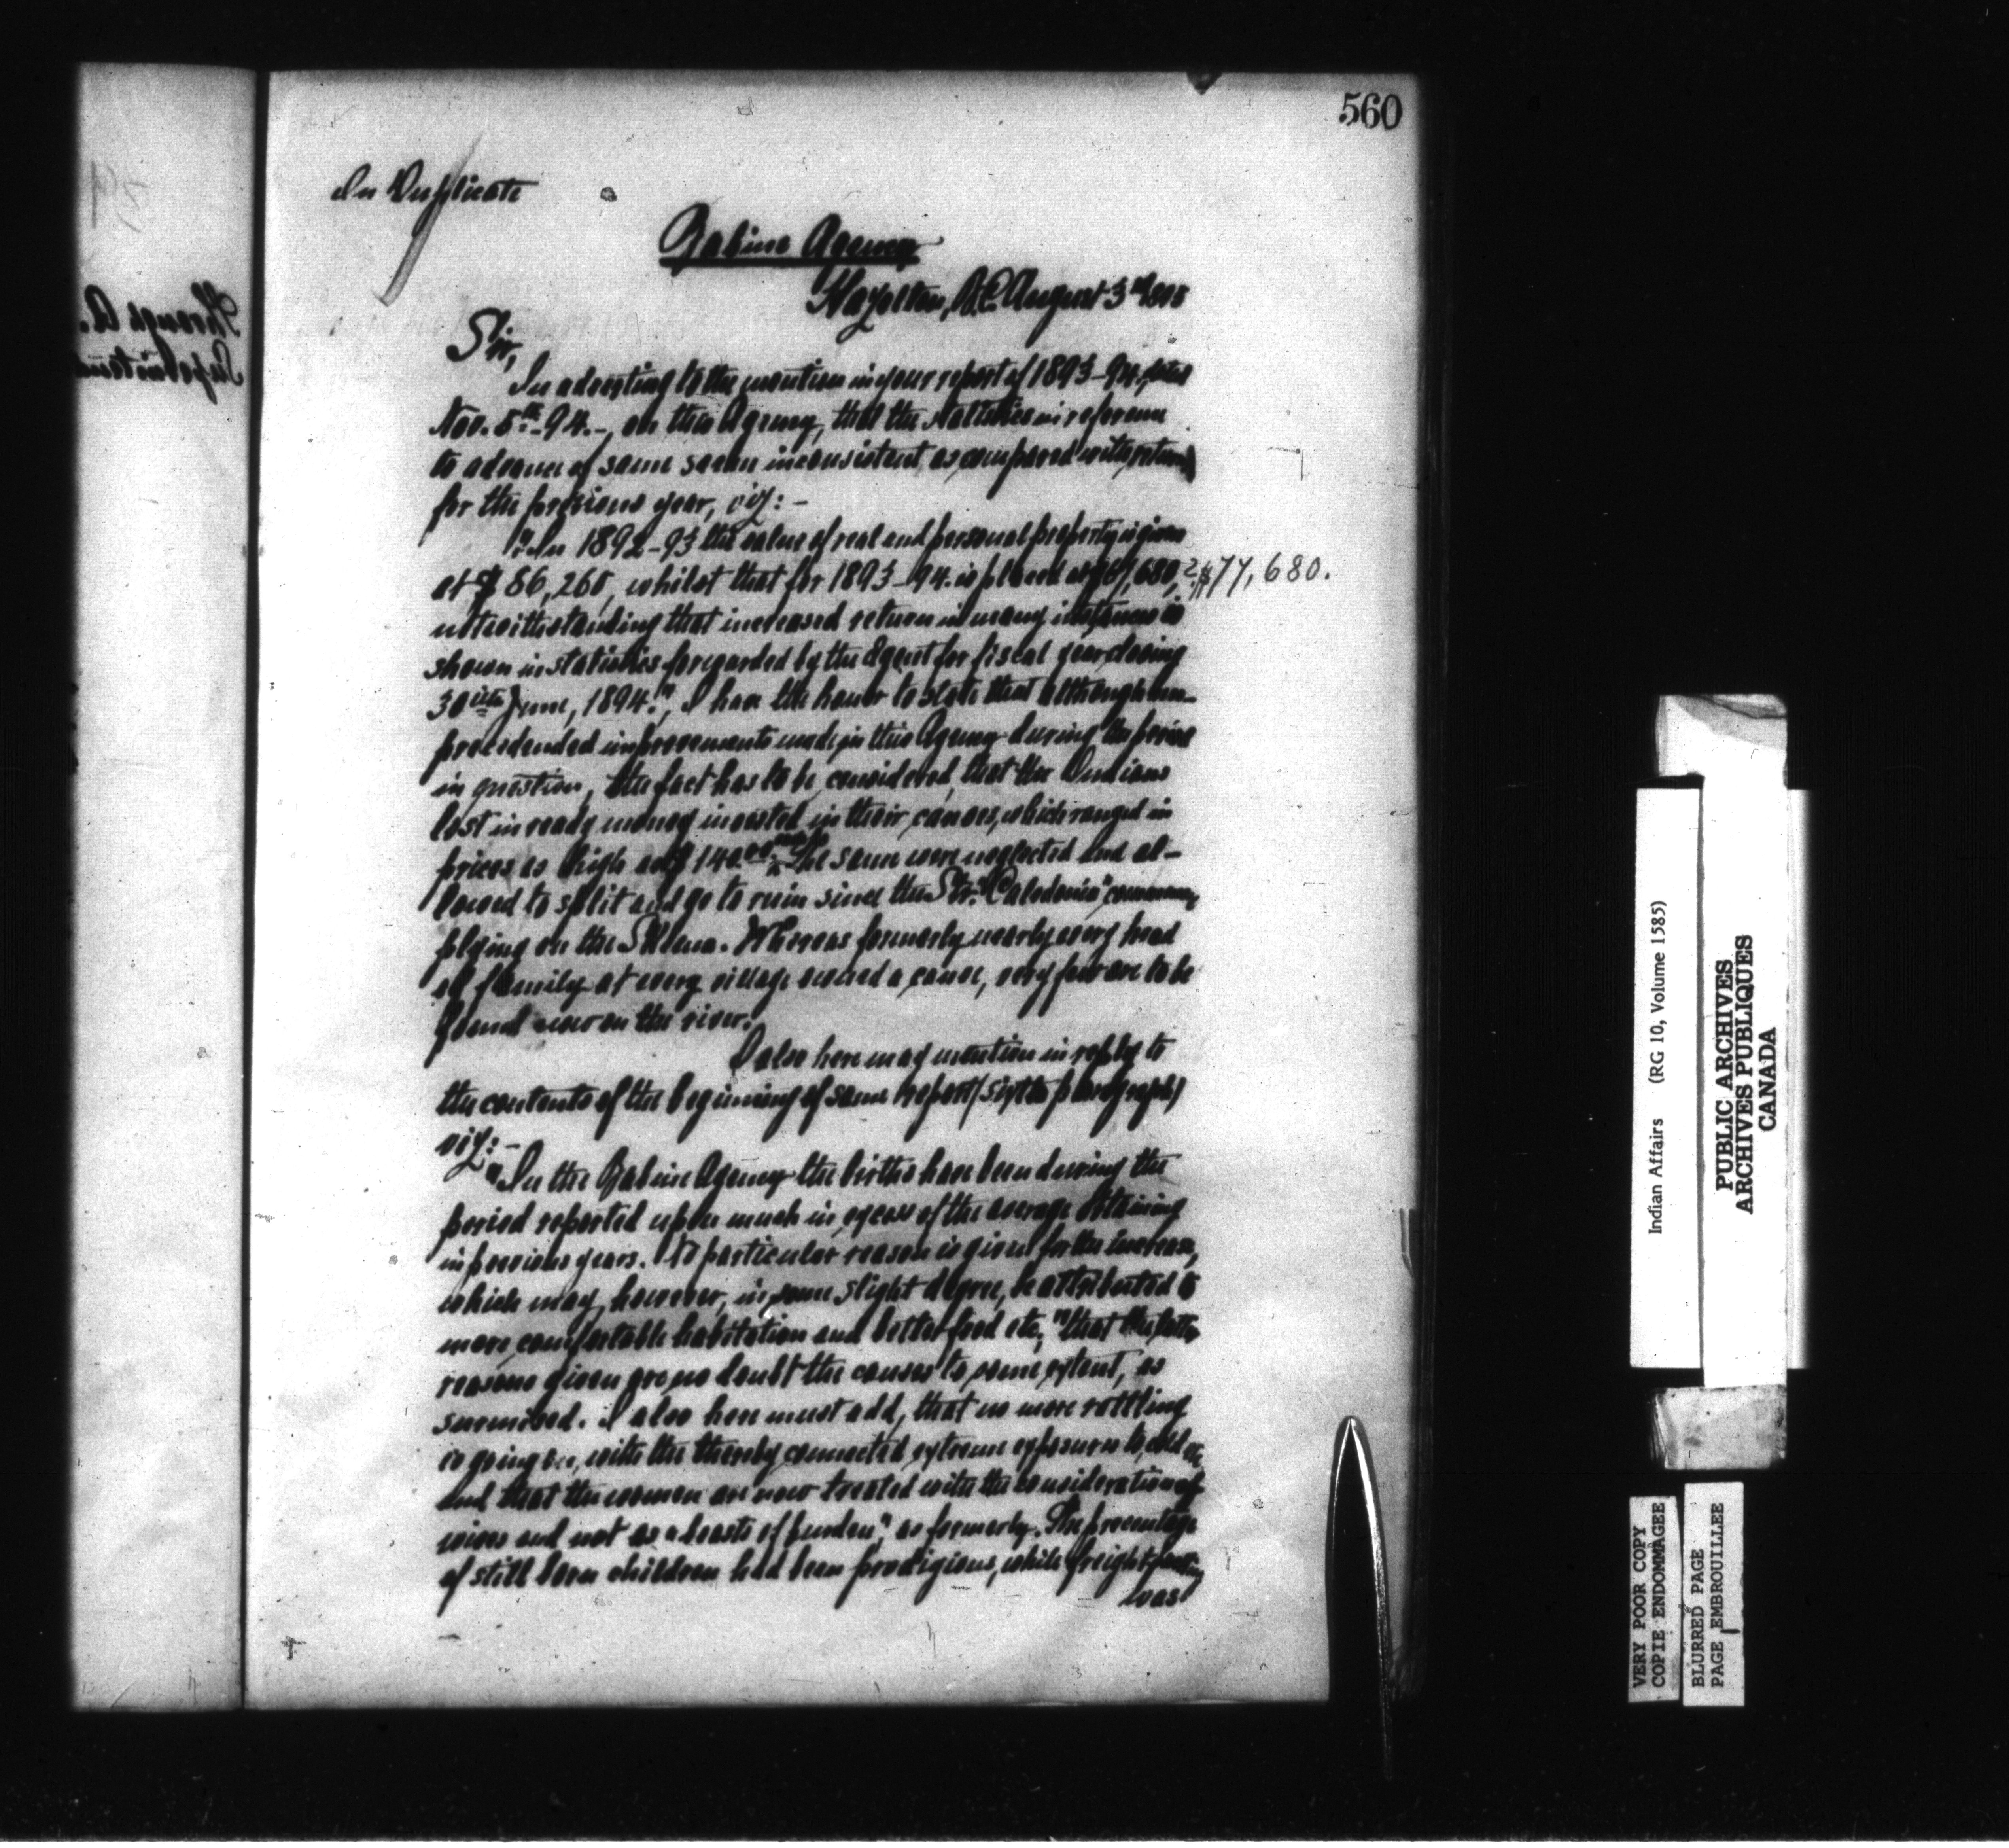 560
In Duplicate
Babine Agency
Hazelton, B.C. August 3rd
Sir,
In adverting to the mention in your report of 1893-94, dated
Nov. 5th-94.-, on this Agency, that the statistics in reference
to advance of same seem inconsistent as compared with returns
for the previous year, viz:-
"In 1892-93 the value of real and personal property is given
at $86,265, whilst that for 1893-94. is placed at 680, ? $77,680.
notwithstanding that increased return in many instances is
shown in statistics forwarded by the Agent for fiscal year closing
30ieth June, 1894.", I have the honor to state that although un-
precedended improvements made in this Agency during the period
in question, the fact has to be considered, that the Indians
lost in ready money invested in their canoes, which ranged in
prices as high as $140.00 The same were neglected and al-
lowed to split and go to ruin since the Str. "Caledonia"
plying on the Skeena. Whereas formerly nearly every head
of family at every village owned a canoe, very few are to be
found now on the river.
I also here may mention in reply to
the contents of the beginning of same report (sixth paragraph)
viz:-
"In the Babine Agency the births have been during the
period reported upon much in excess of the average obtaining
in previous years. No particular reason is given for the increase,
which may, however, in some slight degree, be attributed to
more comfortable habitation and better food etc," that the latter
reasons given are no doubt the causes to some extent, as
surmised. I also here must add, that no more rattling
is going on, with the thereby connected extreme exposure to cold etc,
and that the women are now treated with the consideration of
wives and not as "beasts of burden", as formerly. The precentage
of still born children had been prodigious, while freight
was
Through A.
Superintend
Indian Affairs (RG 10, Volume 1585)
PUBLIC ARCHIVES
ARCHIVES PUBLIQUES
CANADA
VERY POOR COPY
COPIE ENDOMMAGEE
BLURRED PAGE
PAGE EMBROUILLEE